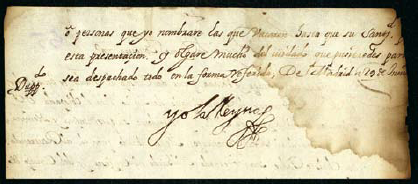 o personas que yo nombrare las que vacaren hasta que su Santd.
esta presentacion. y olgare mucho del cuidado que pusieredes para
sea despachado todo en la forma referida, De Madrid a 19 de
Dupp.do
yo la Reyna